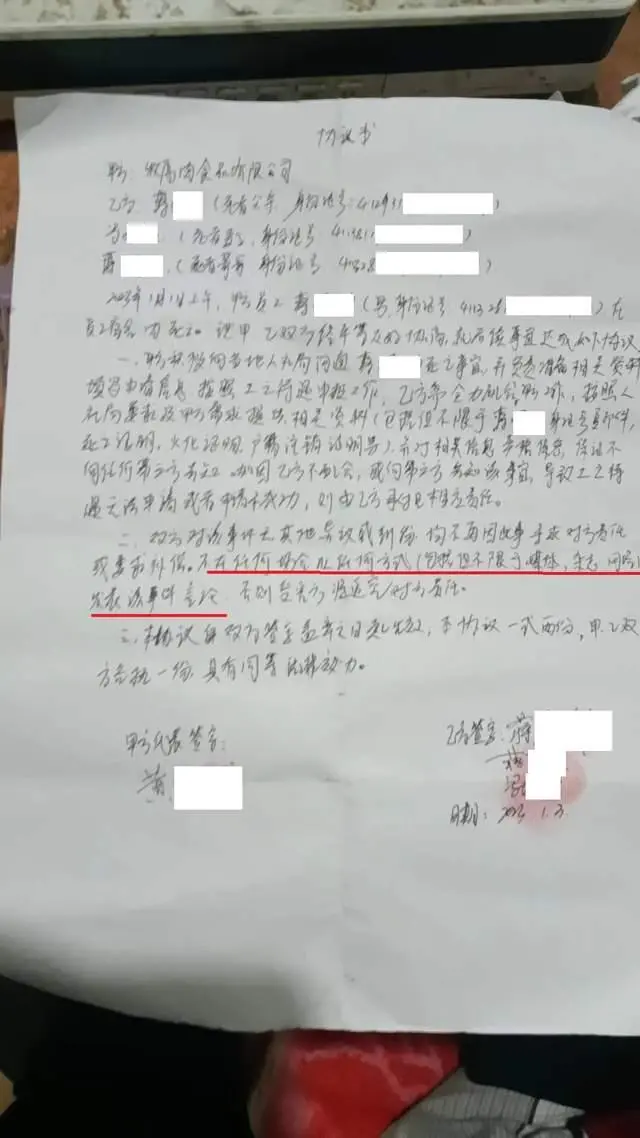 协议书
甲方：牧原肉食品有限公司
乙方：蒋（死者父亲，身份证号：41293
（死者妻子，身份证号
蒋（死者哥哥 身份证号
2023年1月1日上午，甲方员工蒋（男，身份证号 41132 在
员工宿舍内死亡。现甲、乙双方经平等友好协商，就后续事宜达成如下协议
一、甲方积极向当地人社局沟通蒋死亡事宜，并负责准备相关资料
填写申请信息，按照工亡待遇申报工作，乙方需全力配合甲方工作，按照人
社局要求及甲方需求提供相关资料（包括但不限于蒋身份证复印件，
死亡证明，火化证明，户籍注销证明等），并对相关信息严格保密，保证不
向任何第三方告知。如因乙方不配合，或向第三方告知该事宜，导致工亡待
遇无法申请或者申请不成功，则由乙方承担相应责任。
二、双方对该事件无其他异议或纠纷，均不再因此事寻求对方责任
或要求补偿。不在任何场合以任何方式（包括但不限于媒体，杂志，网络）
发表该事件言论，否则受害方追究对方责任。
三、本协议自双方签字盖章之日起生效，本协议一式两份，甲、乙双
方各执一份，具有同等法律效力。
甲方代表签字：
乙方签字：蒋
日期：2023.1.3.